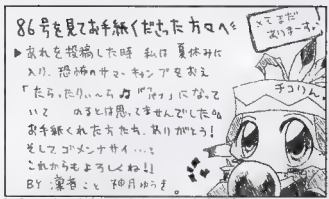 86号を見てお手紙くださった方々へ
▶あれを投稿した時 私は夏休みに
入り、恐怖のサマーキャンプをおえ
「たらったりぃ～ち♫
になって
いて のるとは思ってませんでした
お手紙くれた方たち、ありがとう!
そしてゴメンナサイ…:
これからもよろしくね!!
BY こと 神月ゆうき。
まだ
ありまーす。
チコりん